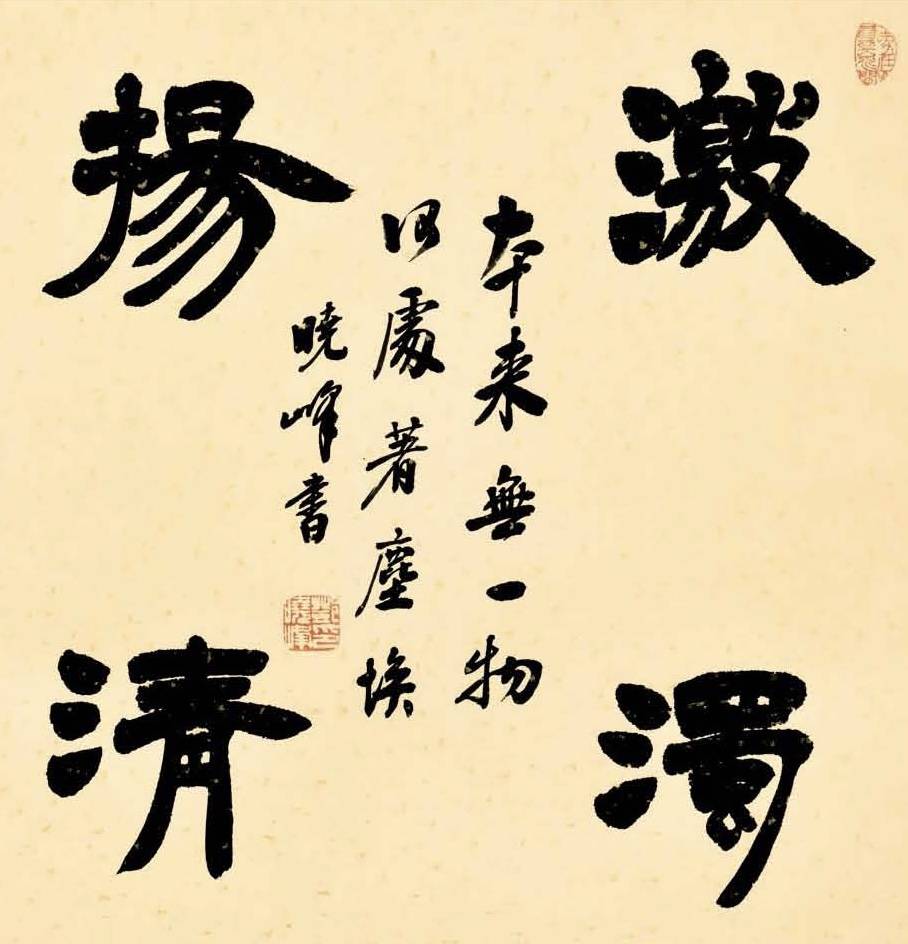 激濁
揚清
本来無一物
何處著塵埃
曉峰書